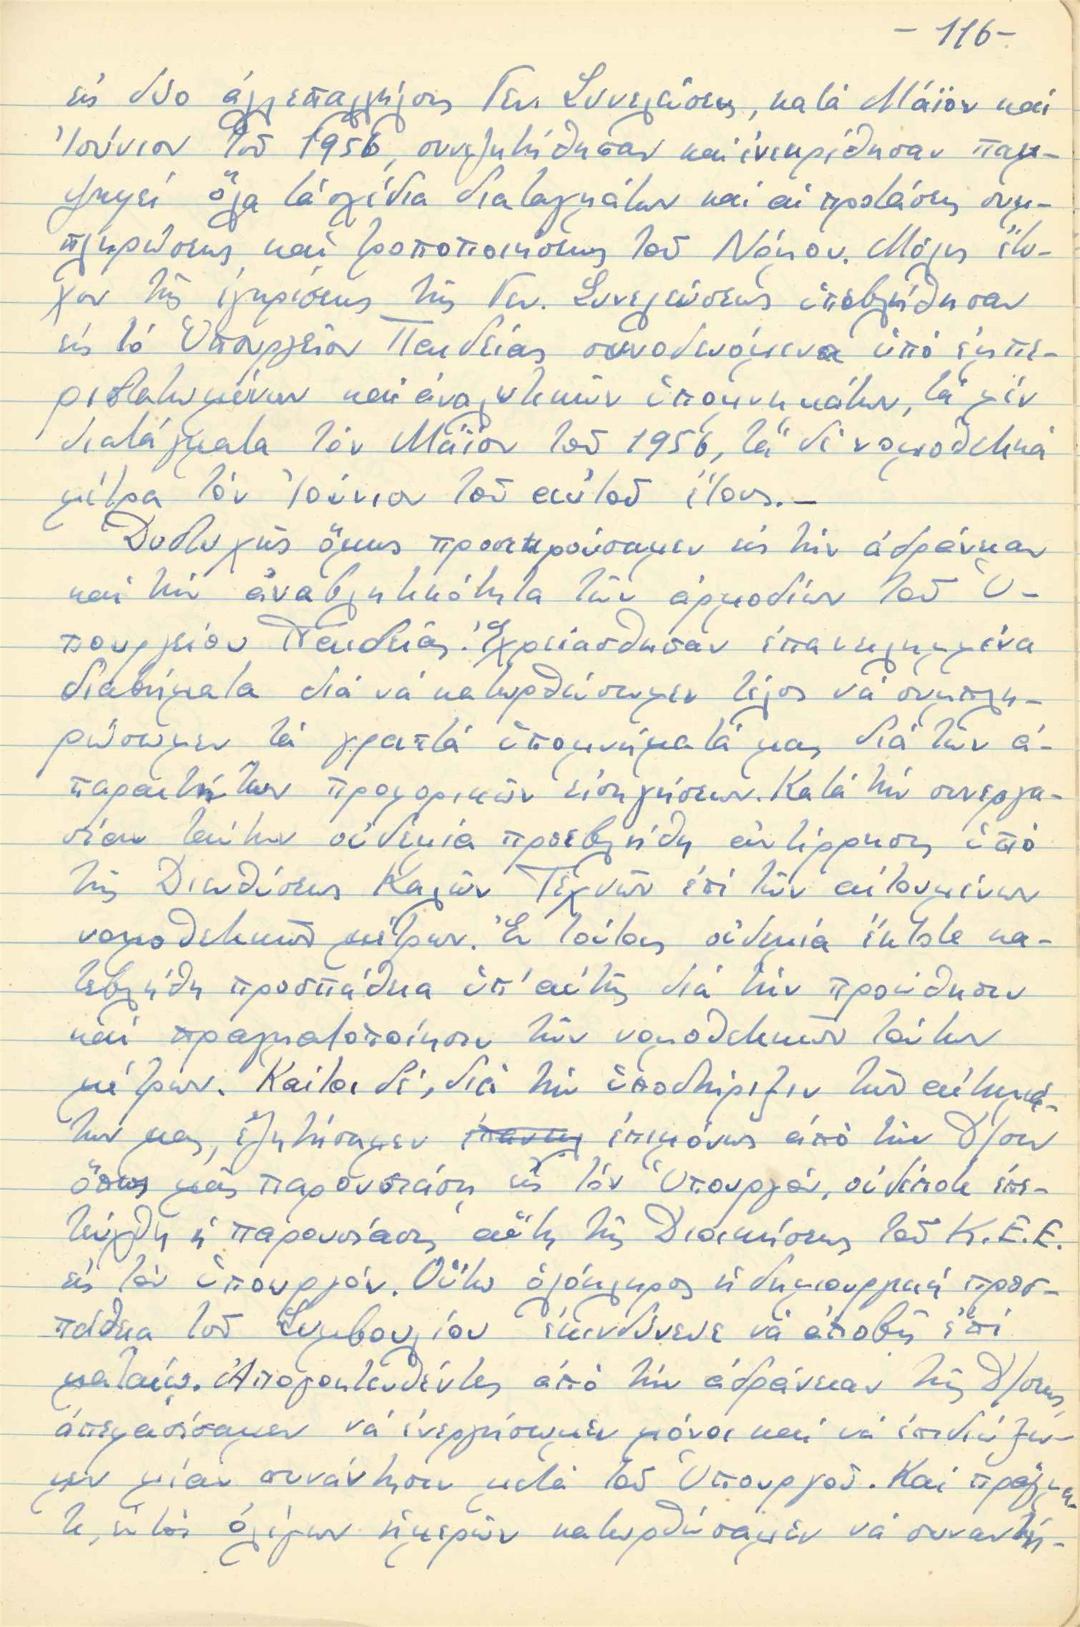 - 116 -
εἰς δύο ἀλλεπαλλήλους Γεν. Συνελεύσεις, κατά Μάϊον καί
Ἰούνιον τοῦ 1956, συνεζητήθησαν καί ἐνεκρίθησαν παμ-
ψηφεί ὅλα τά σχέδια διαταγμάτων καί αἱ προτάσεις συμ-
πληρώσεως καί τροποποιήσεως τοῦ Νόμου. Μόλις ἔτυ-
χον τῆς ἐγκρίσεως τῆς Γεν. Συνελεύσεως ὑπεβλήθησαν
εἰς τό Ὑπουργεῖον Παιδείας συνοδευόμενα ὑπό ἐμπε-
ριστατωμένων καί ἀναλυτικῶν ὑπομνημάτων, τά μέν
διατάγματα τόν Μάϊον τοῦ 1956, τά δέ νομοθετικά
μέτρα τόν Ἰούνιον τοῦ αὐτοῦ ἔτους.-
Δυστυχῶς ὅμως προσεκρούσαμεν εἰς τήν ἀδράνειαν
καί τήν ἀναβλητικότητα τῶν ἁρμοδίων τοῦ Ὑ-
πουργείου Παιδείας. Ἐχρειάσθησαν ἐπανειλημμένα
διαβήματα διά νά κατορθώσωμεν τέλος νά συμπλη-
ρώσωμεν τά γραπτά ὑπομνήματά μας διά τῶν ἀ-
παραιτήτων προφορικῶν εἰσηγήσεων. Κατά τήν συνεργα-
σίαν ταύτην οὐδεμία προεβλήθη ἀντίρρησις ὑπό
τῆς Διευθύσεως Καλῶν Τεχνῶν ἐπί τῶν αἰτουμένων
νομοθετικῶν μέτρων. Ἐν τούτοις οὐδεμία ἔκτοτε κα-
τεβλήθη προσπάθεια ὑπ' αὐτῆς διά τήν προώθησιν
καί πραγματοποίησιν τῶν νομοθετικῶν τούτων
μέτρων. Καίτοι δέ, διά τήν ὑποστήριξιν τῶν αἰτημά-
των μας, ἐζητήσαμεν ἐπιμόνως ἀπό τήν Δ/σιν
ὅπως μᾶς παρουσιάσῃ εἰς τόν Ὑπουργόν, οὐδέποτε ἐπε-
τεύχθη ἡ παρουσίασις αὕτη τῆς Διοικήσεως τοῦ Κ.Ε.Ε.
εἰς τόν ὑπουργόν. Οὕτω ὁλόκληρος ἡ δημιουργική προσ-
πάθεια τοῦ Συμβουλίου ἐκινδύνευε νά ἀποβῇ ἐπί
ματαίῳ. Ἀπογοητευθέντες ἀπό τήν ἀδράνειαν τῆς Δ/σεως,
ἀπεφασίσαμεν νά ἐνεργήσωμεν μόνοι καί νά ἐπιδιώξω-
μεν μίαν συνάντησιν μετά τοῦ Ὑπουργοῦ. Καί πράγμα-
τι, ἐντός ὀλίγων ἡμερῶν κατωρθώσαμεν νά συναντή-